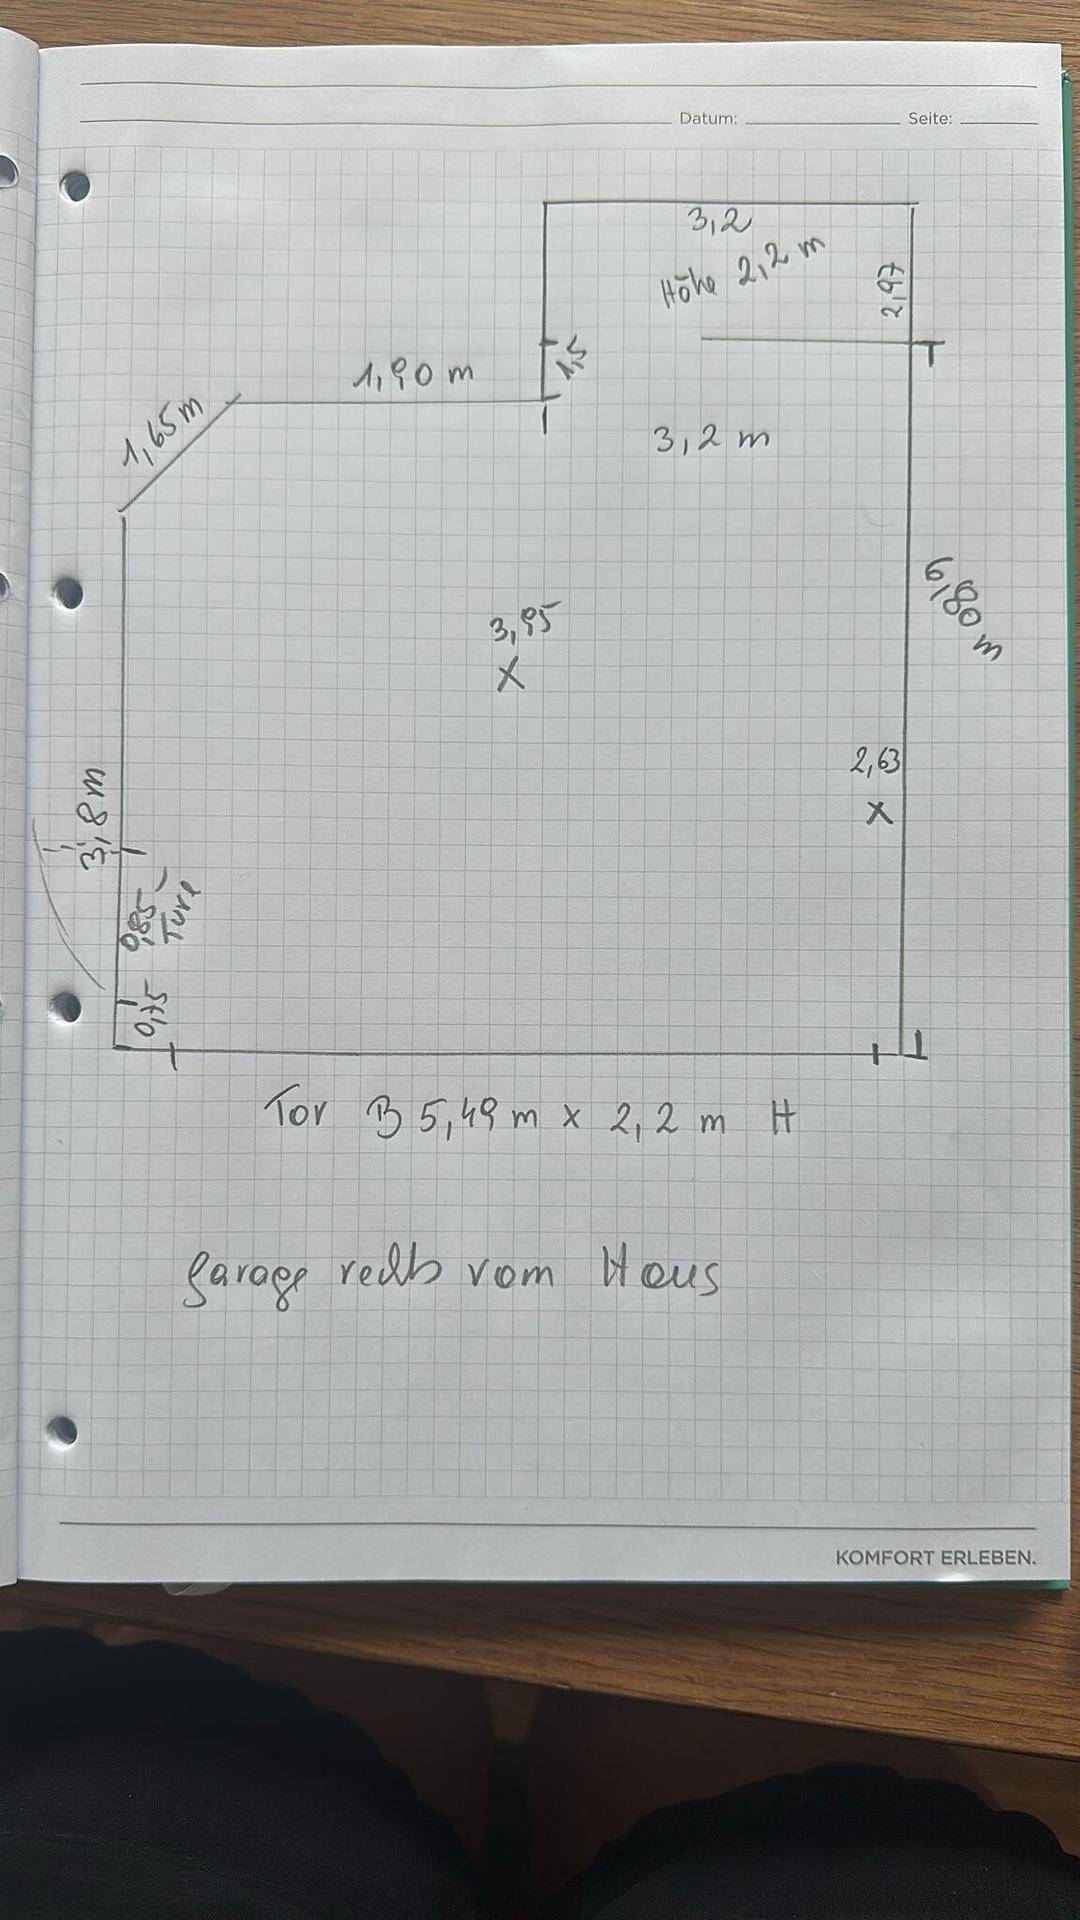 Datum:
Seite:
3,2
Höhe 2,2 m
2,97
1,5
1,90 m
1,65 m
3,2 m
6,80 m
3,95
X
2,63
X
3,8 m
0,85
Türe
0,75
Tor B 5,49 m x 2,2 m H
garage rechts vom Haus
KOMFORT ERLEBEN.